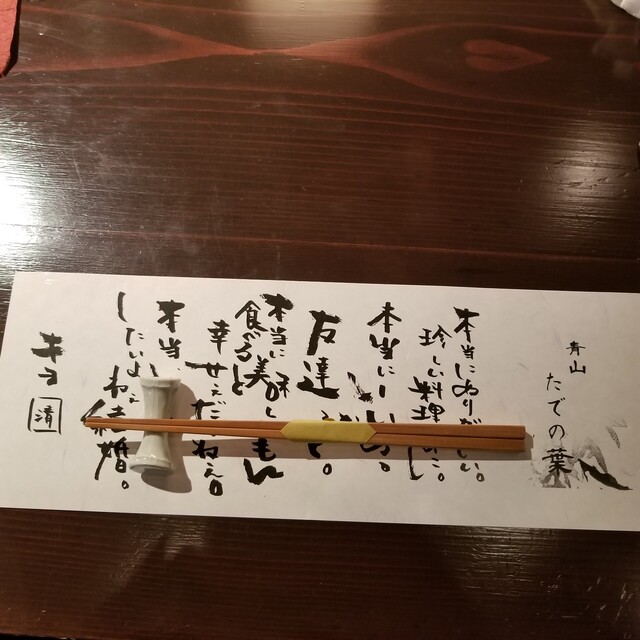 青山
たでの葉
本当にありがたい。
珍しい料理
本当に
友達
本当に美味しいもん
食べると
幸せだねぇ。
本当
したいねぇ
結婚。
キヨ
清